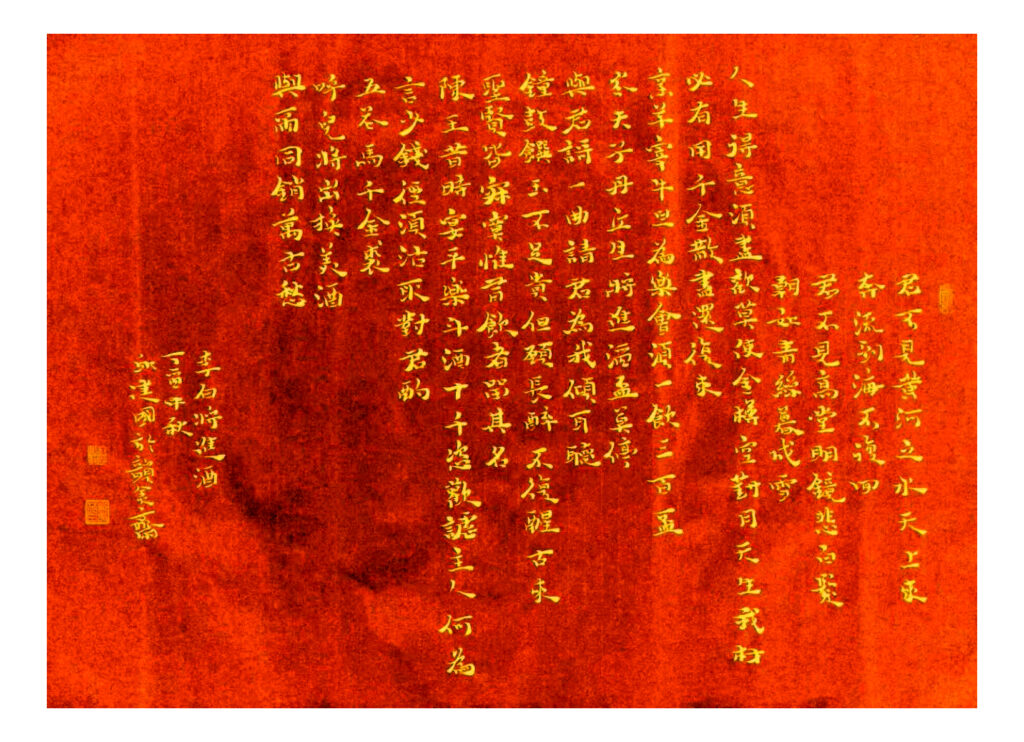 君不見黃河之水天上來
奔流到海不復回
君不見高堂明鏡悲白髮
朝如青絲暮成雪
人生得意須盡歡莫使金樽空對月天生我材
必有用千金散盡還復來
烹羊宰牛且為樂會須一飲三百盃
岑夫子丹丘生將進酒盃莫停
與君謌一曲請君為我傾耳聽
鐘鼓饌玉不足貴但願長醉不復醒古來
聖賢皆寂寞惟有飲者留其名
陳王昔時宴平樂斗酒十千恣歡謔主人何為
言少錢徑須沽取對君酌
五花馬千金裘
呼兒將出換美酒
與爾同銷萬古愁
李白將進酒
丁酉中秋
建國於齋